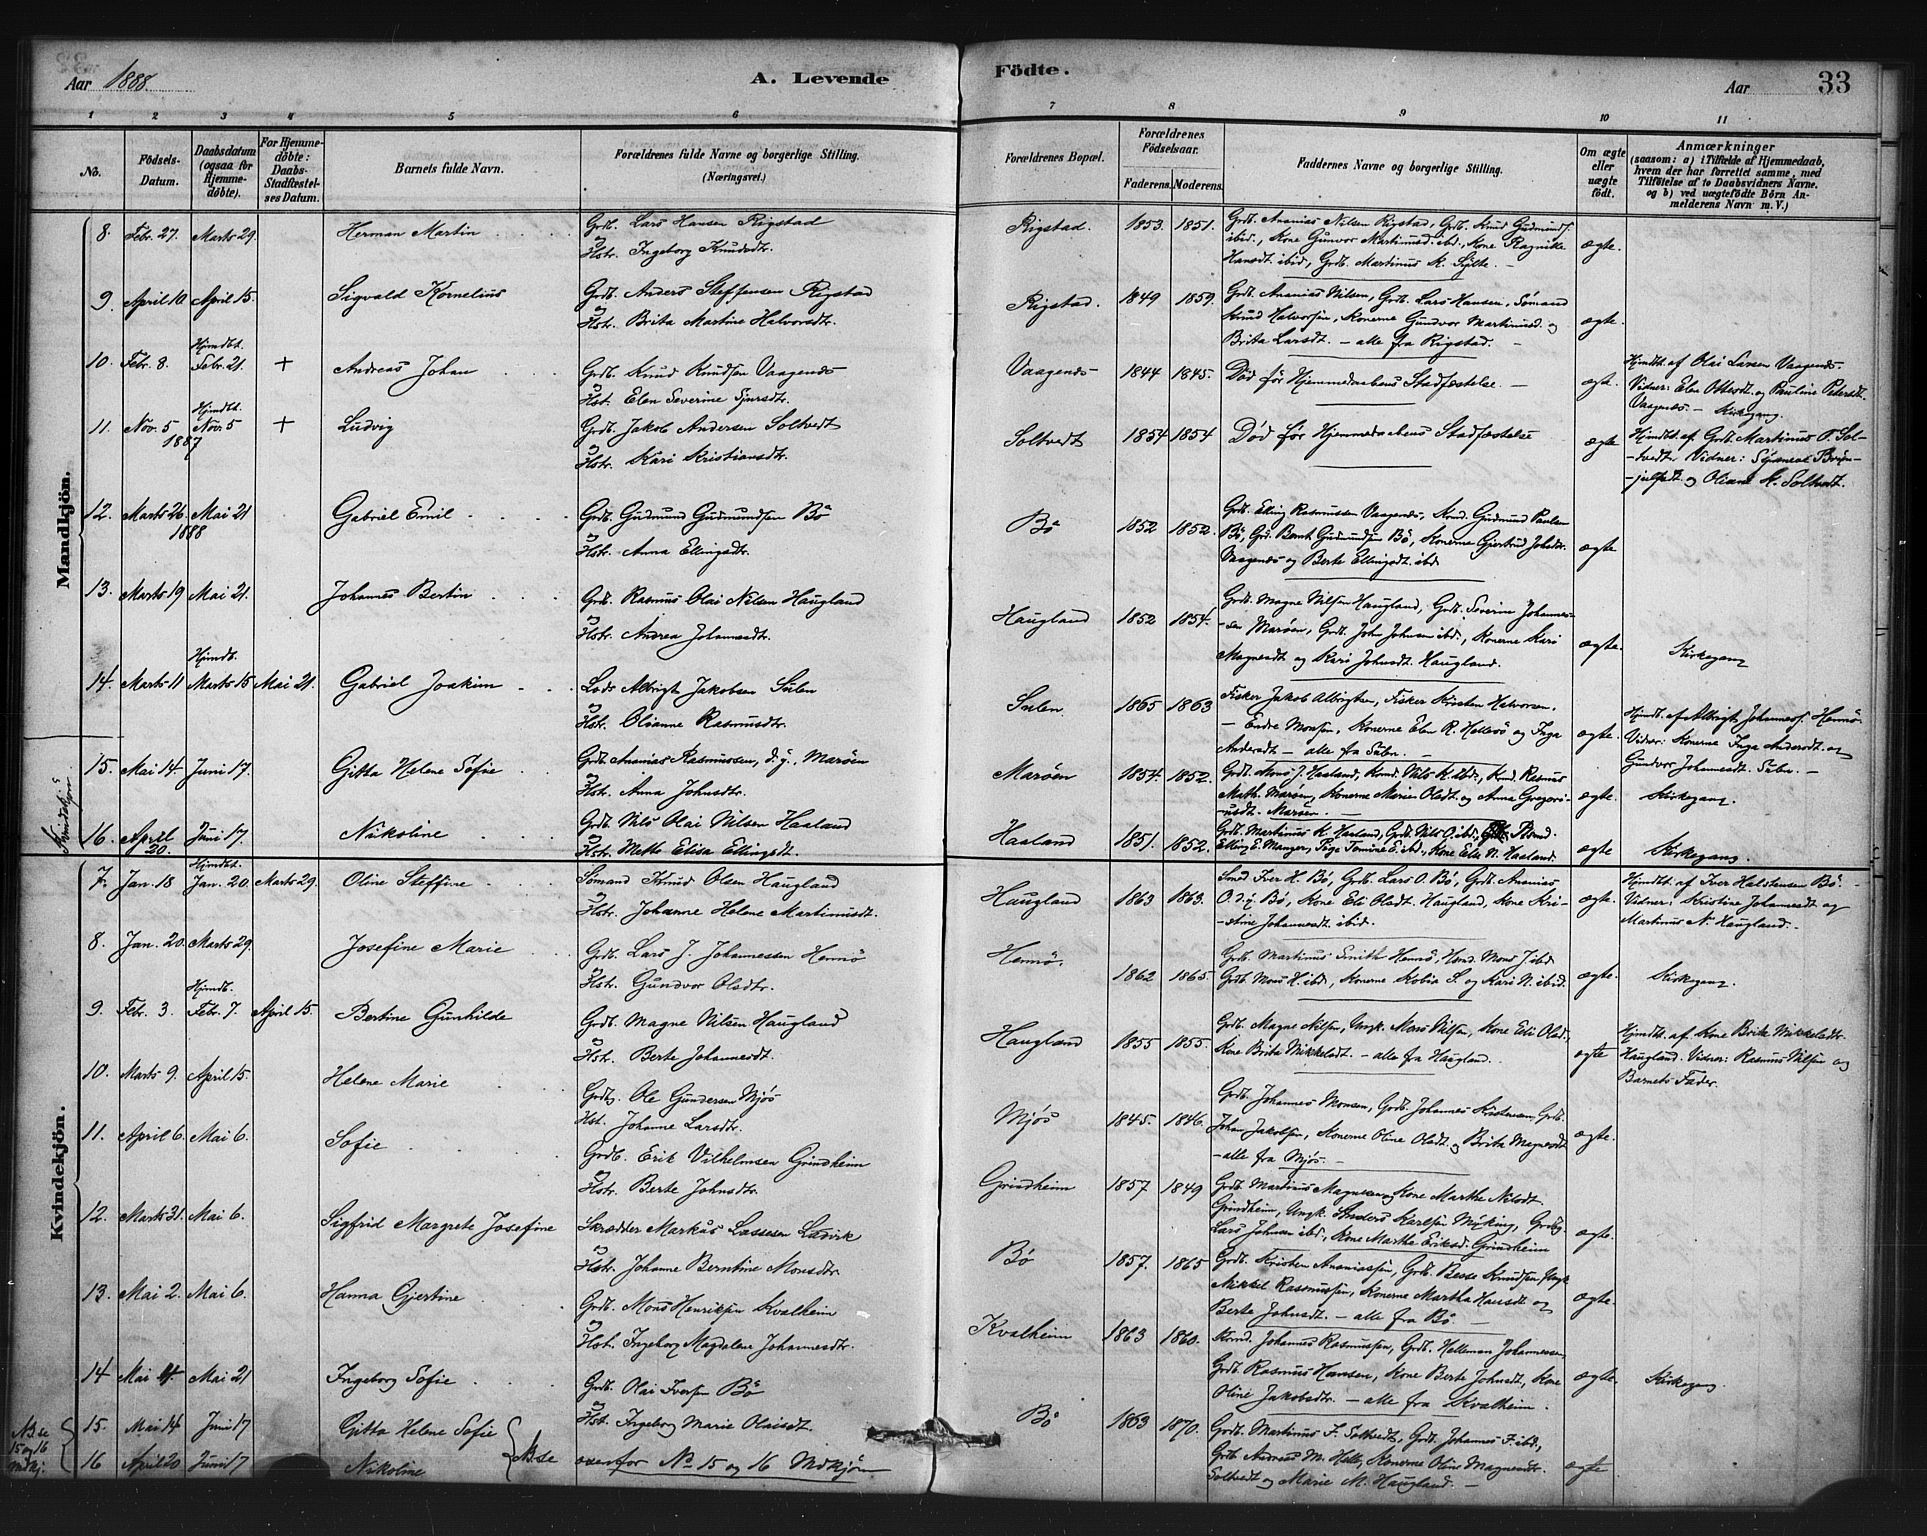 Aar 1888. A. Levende Födte. Aar 33
1 2 3 4 5 6 7 8 9 10 11
No. Födsels-Datum. Daabsdatum (ogsaa for Hjemme-döbte). For Hjemme-döbte: Daabs-Stadfæstel-ses Datum. Barnets fulde Navn. Forældrenes fulde Navne og borgerlige Stilling. (Næringsvei.) Forældrenes Bopæl. Forældrenes Födselsaar. Faderens. Moderens. Faddernes Navne og borgerlige Stilling. Om ægte eller uægte födt. Anmærkninger (saasom: a) i Tilfælde af Hjemmedaab, hvem der har forrettet samme, med Tilföielse af to Daabsvidners Navne, og b) ved uægtefödte Börn An-melderens Navn m. V.)
Mandkjön.
8. Febr. 27. Marts 29. Herman Martin Grdb. Lars Hansen Rigstad
og Hstr. Ingeborg Knudsdtr. Rigstad. 1853. 1851. Grdb. Ananias Nilsen Rigstad, Grdb. Knud Gudmunds.
ibid., Kone Gunvor Martinusd. ibd., Kone Ragnilde
Hansdt. ibid, Grdb. Martinus K. Sylte. — ægte.
9. April 10. April 15. Sigvald Kornelius Grdb. Anders Steffensen Rigstad
og Hstr. Brita Martine Halvorsdtr. Rigstad. 1849 1859. Grdb. Ananias Nilsen, Grdb. Lars Hansen, Sømand
Knud Halvorsen, Konerne Gundvor Martinusd. og
Brita Larsdt. — alle fra Rigstad. — ægte.
10. Febr. 8. Hjmdbt. Febr. 21. + Andreas Johan Grdb. Knud Knudsen Vaagenes
og Hst. Elen Severine Sjursdtr. Vaagenes 1844 1845. Død før Hjemmedaabens Stadfæstelse. — ægte. Hjmdbt. af Olai Larsen Vaagenes.
Vidner: Elen Ottesdt. og Pauline Pedersdt.
Vaagenes. — Kirkegang.
11. Nov. 5 1887 Hjmdbt. Nov. 5 + Ludvig Grdb. Jakob Andersen Soltvedt
og Hstr. Kari Kristiansdtr. Soltvedt 1854 1854 Død før Hjemmedaabens Stadfæstelse ægte Hjmdbt. af Grdb. Martinus O. Sol-
-tvedt. Vidner:
og Oliane K. Soltvedt.
12. Marts 26. 1888 Mai 21 Gabriel Emil Grdb. Gudmund Gudmundsen Bö
og Hstr. Anna Ellingsdtr. Bö 1852 1852. Grdb. Elling Rasmussen Vaagenes, Kmd. Gudmund Paulsen
Bö, Grd. Bernt Gudmundsen Bö, Konerne Gjertrud Johsdtr.
Vaagenes og Berte Ellingsdt. ibd. ægte
13. Marts 19 Mai 21. Johannes Bertin Grdb. Rasmus Olai Nilsen Haugland
og Hstr. Andrea Johannesdtr. Haugland 1852 1854. Grdb. Magne Nilsen Haugland, Grdb. Severin Johannes-
-sen Marøen, Grdb. John Johnsen ibd., Konerne Kari
Magnesdt og Kari Johnsdt. Haugland. ægte. Kirkegang
14. Marts 11 Hjmdbt. Marts 15 Mai 21. Gabriel Joakim Lods Albrigt Jakobsen Sulen
og Hstr. Olianne Rasmusdtr. Sulen. 1865 1863 Fisker Jakob Albrigtsen, Fisker Kristen Halvorsen.
— Endre Monsen, Konerne Elen R. Hellesö og Inga
Andersdt — alle fra Sulen. — ægte. Hjmdbt. af Albrigt Johanness. Hennö.
Vidner: Konerne Inga Andersdt og
Gundvor Johannesdt. Sulen. —
Kvindekjön
15. Mai 14 Juni 17. Gitta Helene Sofie Grdb. Ananias Rasmussen, d. y., Marøen
og Hstr. Anna Johnsdtr. Marøen 1854. 1852. Grdb. Mons J. Haaland, Kmd. Nils K. ibd., Kmd. Rasmus
Math. Marøen, Konerne Marie Olsdt. og Anna Gregori-
-usdt. Marøen. — ægte. Kirkegang.
16. April 20. Juni 17. Nikoline Grdb. Nils Olai Nilsen Haaland
og Hstr. Mette Elisa Ellingsdt. Haaland 1851. 1852. Grdb. Martinus K. Haaland, Grdb. Nils O. ibd.,
Elling E. Manger, Pige Tomine E. ibd., Kone Elen N. Haaland. ægte Kirkegang.
Kvindekjön.
7. Jan. 18 Hjmdbt. Jan. 20. Marts 29. Oline Steffine Sömand Knud Olsen Haugland
og Hstr. Johanne Helene Martinusdt. Haugland 1863 1863. Smed Iver H. Bö, Grdb. Lars O. Bö, Grdb. Ananias
O. d. y. Bö, Kone Eli Olsdt. Haugland, Kone Kri-
-stine Johannesdt. ibid. ægte. Hjmdbt. af Iver Halstensen Bö. —
Vidner: Kristine Johannesdt og
Martinus N. Haugland. —
8. Jan. 20. Marts 29. Josefine Marie Grdb. Lars J. Johannessen Hennö
og Hstr. Gundvor Olsdtr. Hennö. 1862 1865. Grdb. Martinus Smith Hennö, Hmd. Mons J. ibd.
Grdb. Mons H. ibd., Konerne Kobia S. og Kari N. ibid. ægte. Kirkegang.
9. Febr. 3. Hjmdbt. Febr. 7. April 15. Bertine Gunhilde Grdb. Magne Nilsen Haugland
og Hstr. Berte Johannesdt. Haugland 1855 1855. Grdb. Magne Nilsen, Ungk. Mons Nilsen, Kone Eli Olsd.
Kone Brita Mikkelsdt. — alle fra Haugland. ægte Hjmdbt. af Kone Brita Mikkelsdtr.
Haugland. Vidner: Rasmus Nilsen og
Barnets Fader.
10. Marts 9. April 15. Helene Marie Grdbg. Ole Gundersen Mjös
Hst. Johanne Larsdtr. Mjös 1845. 1846. Grdb. Johannes Monsen, Grdb. Johannes Kristensen, Grdb.
Johan Jakobsen, Konerne Oline Olsdt. og Brita Magnesdt
— alle fra Mjös. — ægte.
11. April 6. Mai 6. Sofie Grdb. Erik Vilhelmsen Grindheim
og Hstr. Berte Johnsdtr. Grindheim 1857 1849 Grdb. Martinus Magnesen, Kone Marthe Nilsdt.
Grindheim, Ungk. Anders Karlsen Myking, Grdbg.
Lars Johnsen ibd., Kone Marthe Eriksd. Grindheim ægte.
12. Marts 31. Mai 6. Sigfrid Margrete Josefine Skrædder Markus Lassesen Ladvik
og Hstr. Johanne Berntine Monsdtr. Bö 1857. 1865 Grdb. Kristen Ananiassen, Grdb. Besse Knudsen, Ungk.
Mikkel Rasmussen, Konerne Martha Hansdt og
Berte Johnsdt. — alle fra Bö. — ægte.
13. Mai 2. Mai 6. Hanna Gjertine Grdb. Mons Henriksen Kvalheim
og Hstr. Ingeborg Magdalene Johannesdtr. Kvalheim 1863 1860. Kmd. Johannes Rasmussen, Grdb. Helleman Johannesen,
Grdb. Rasmus Hansen, Kone Berte Johnsdt, Kone
Oline Jakobsdtr. — alle fra Kvalheim. ægte.
14 Mai 4. Mai 21 Ingeborg Sofie Grdb. Olai Iversen Bö
og Hst. Ingeborg Marie Olaisdt. Bö 1863 1870. Grdb. Martinus F. Soltvedt, Grdb. Johannes F. ibd.,
Grdb. Andreas M. Helle, Konerne Oline Magnesdtr.
Soltvedt og Marie M. Haugland. — ægte Kirkegang
NB. se 15 og 16 Mdkj.
15. Mai 14 Juni 17 Gitta Helene Sofie
16 April 20 Juni 17 Nikoline NB. se ovenfor No 15 og 16 Mdkjön